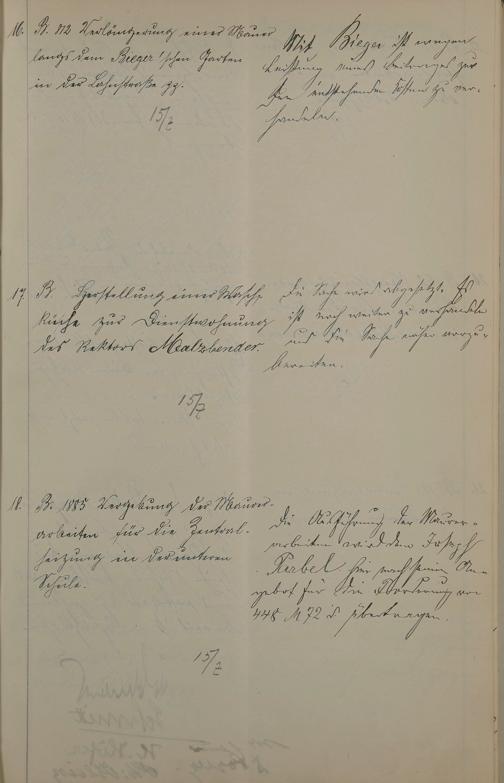 16. B. 112 Verlängerung einer Mauer
längs dem Bieger'schen Garten
in der Lahnstraße pp.
15/7
Mit Bieger ist wegen
Leistung eines Beitrages zu
den entstehenden Kosten zu ver-
handeln.
17. B. Herstellung einer Wasch-
küche zur Dienstwohnung
des Rektors Malzbender.
15/7
Die Sache wird abgesetzt. Es
ist noch weiter zu verhandeln
und die Sache näher vorzu-
bereiten.
18. B. 1885 Vergebung der Maurer-
arbeiten für die Zentral-
heizung in der unteren
Schule.
15/7
Die Ausführung der Maurer-
arbeiten wird dem Joseph
Kerbel hier nach seinem An-
gebot für die Forderung von
448 M 72 d übertragen.